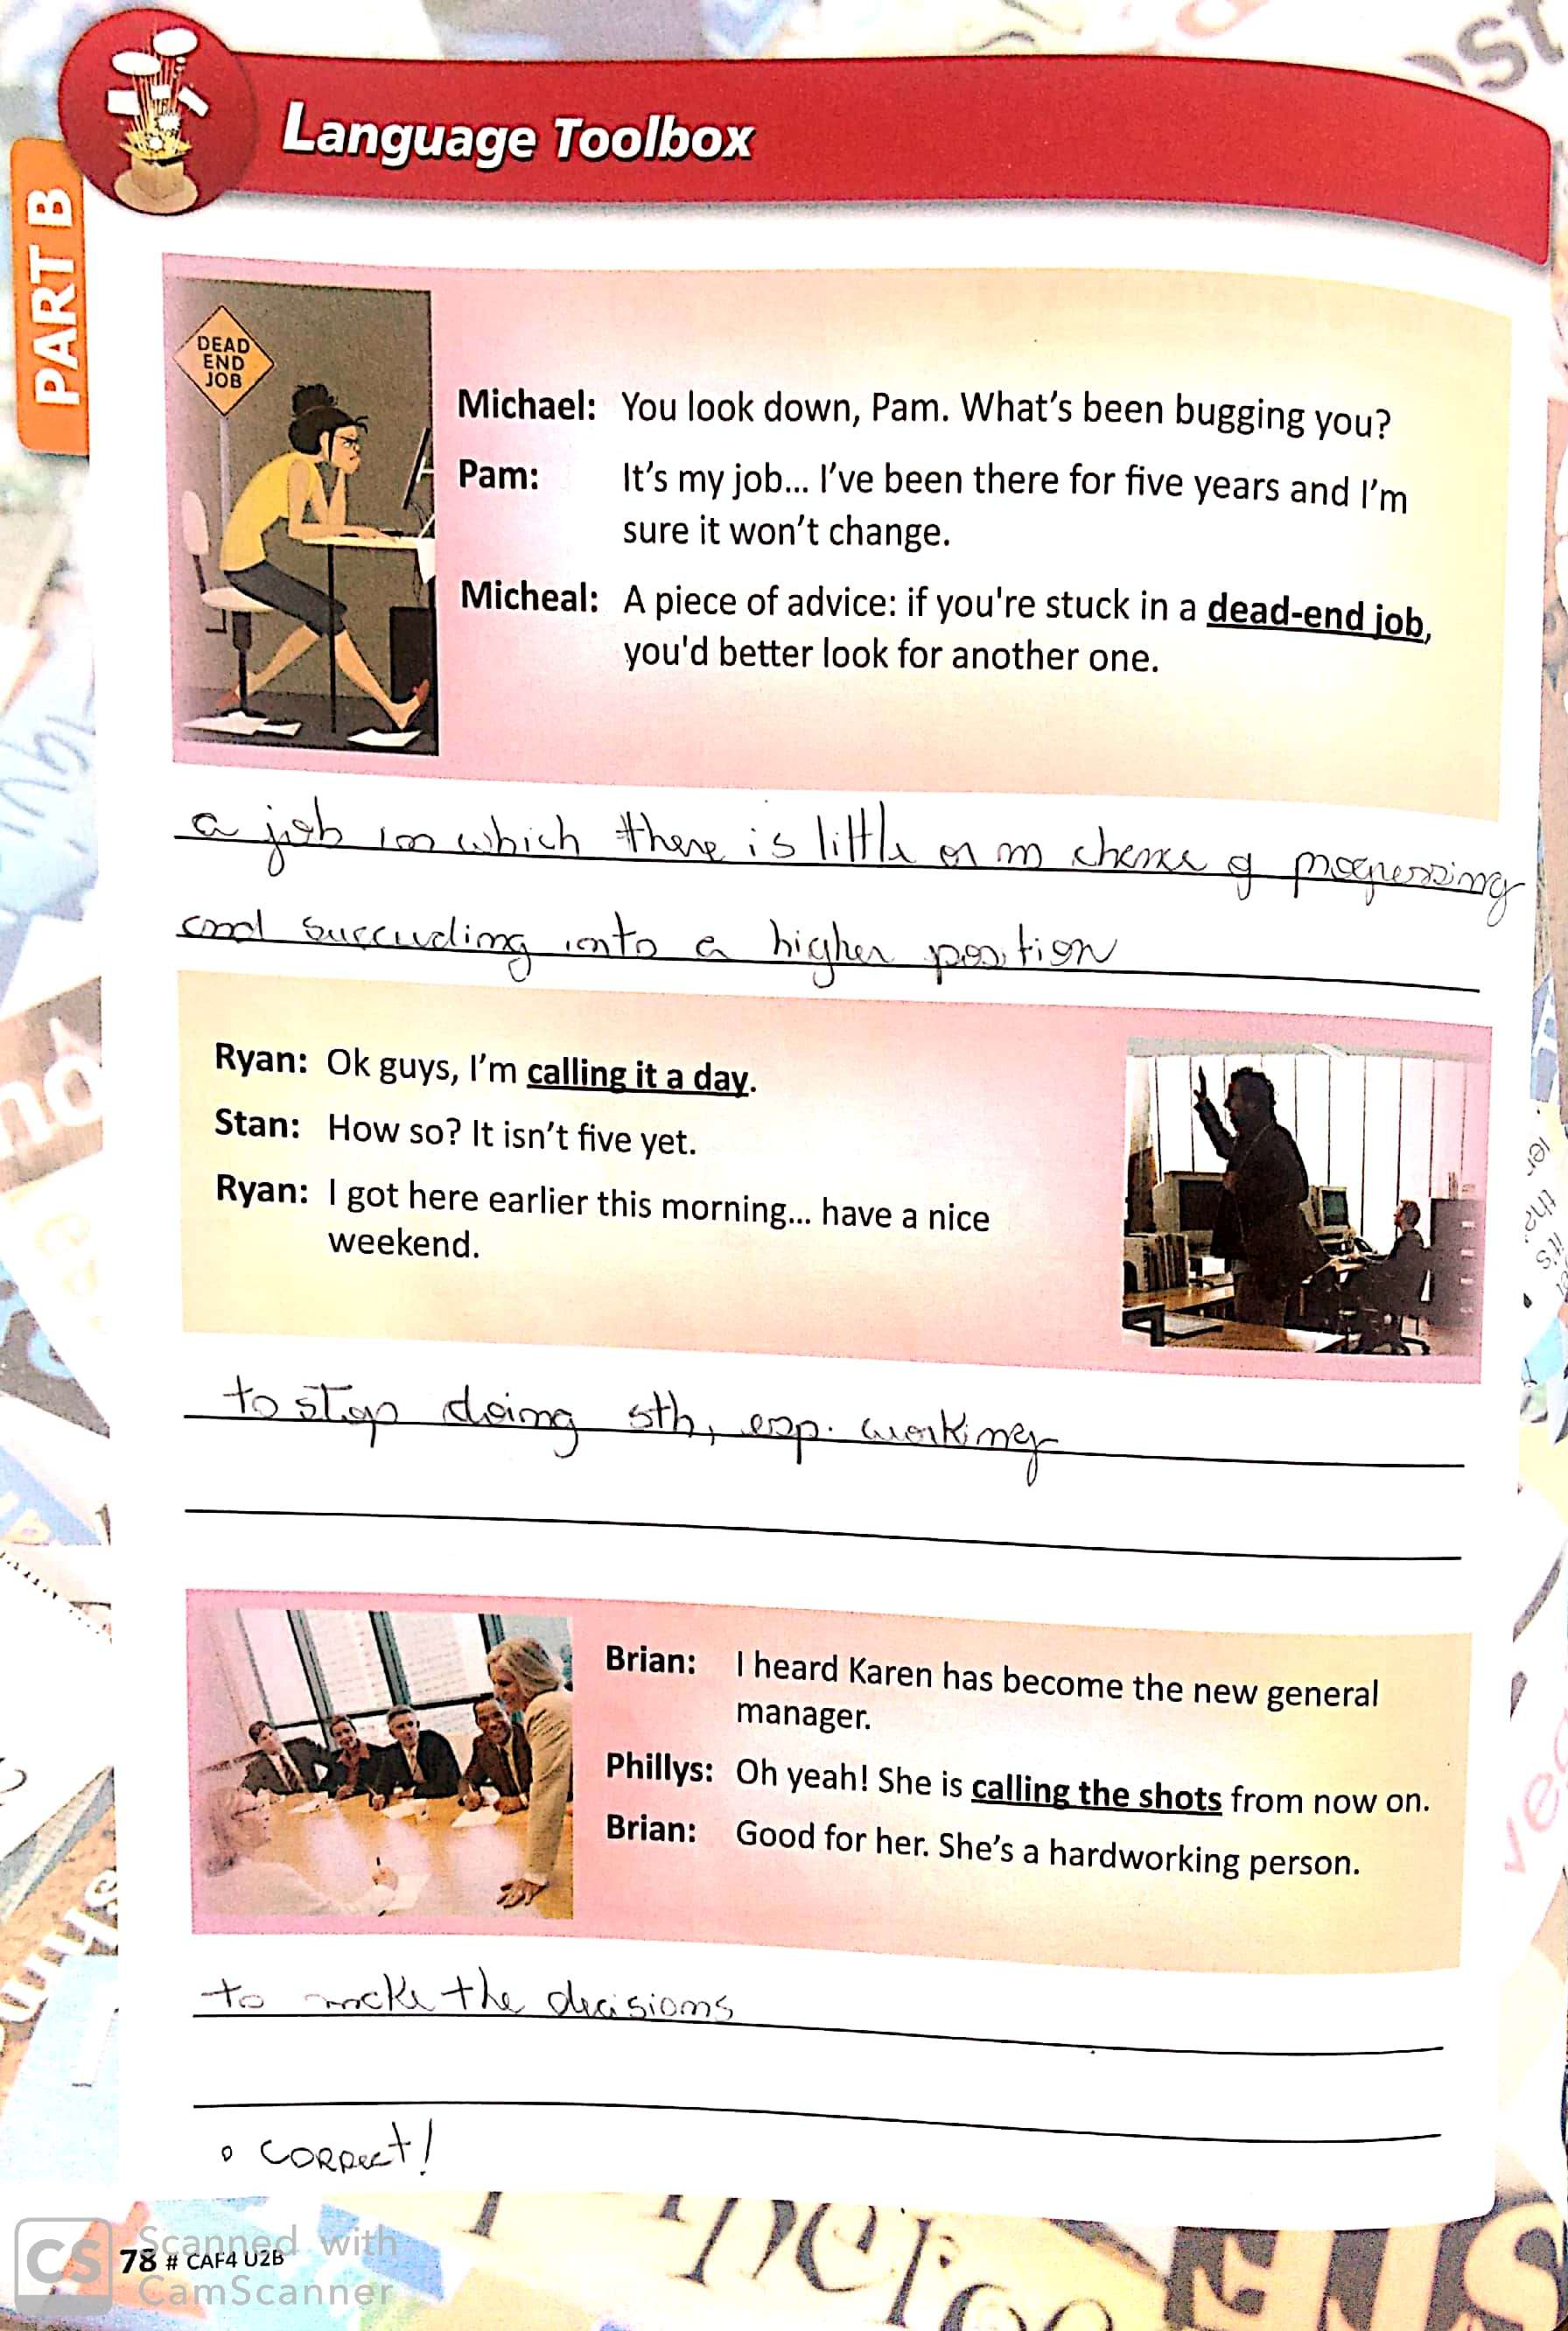 Language Toolbox
PART B
DEAD
END
JOB
Michael: You look down, Pam. What's been bugging you?
Pam: It's my job... I've been there for five years and I'm
sure it won't change.
Micheal: A piece of advice: if you're stuck in a dead-end job,
you'd better look for another one.
a job in which there is little or no chance of progressing
and succeeding into a higher position
Ryan: Ok guys, I'm calling it a day.
Stan: How so? It isn't five yet.
Ryan: I got here earlier this morning... have a nice
weekend.
to stop doing sth, esp. working
Brian: I heard Karen has become the new general
manager.
Phillys: Oh yeah! She is calling the shots from now on.
Brian: Good for her. She's a hardworking person.
to make the decisions
correct!
78 # CAF4 U2B
CS Scanned with
CamScanner